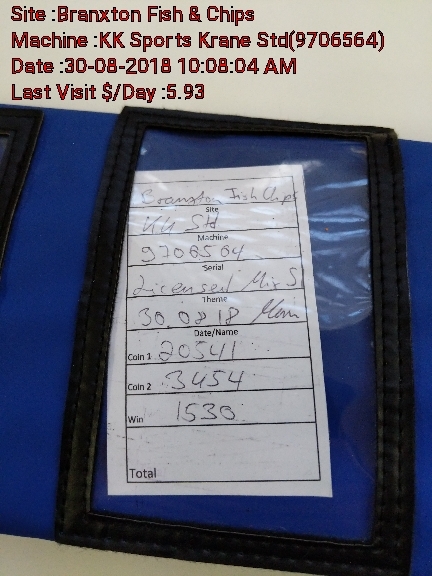 Site :Branxton Fish & Chips
Machine :KK Sports Krane Std(9706564)
Date :30-08-2018 10:08:04 AM
Last Visit $/Day :5.93
Branxton Fish Chips
Site
KK Std
Machine
9706564
Serial
Licensed Mix S
Theme
30.08.18
Date/Name
Coin 1 20541
Coin 2 3454
Win 1530
Total